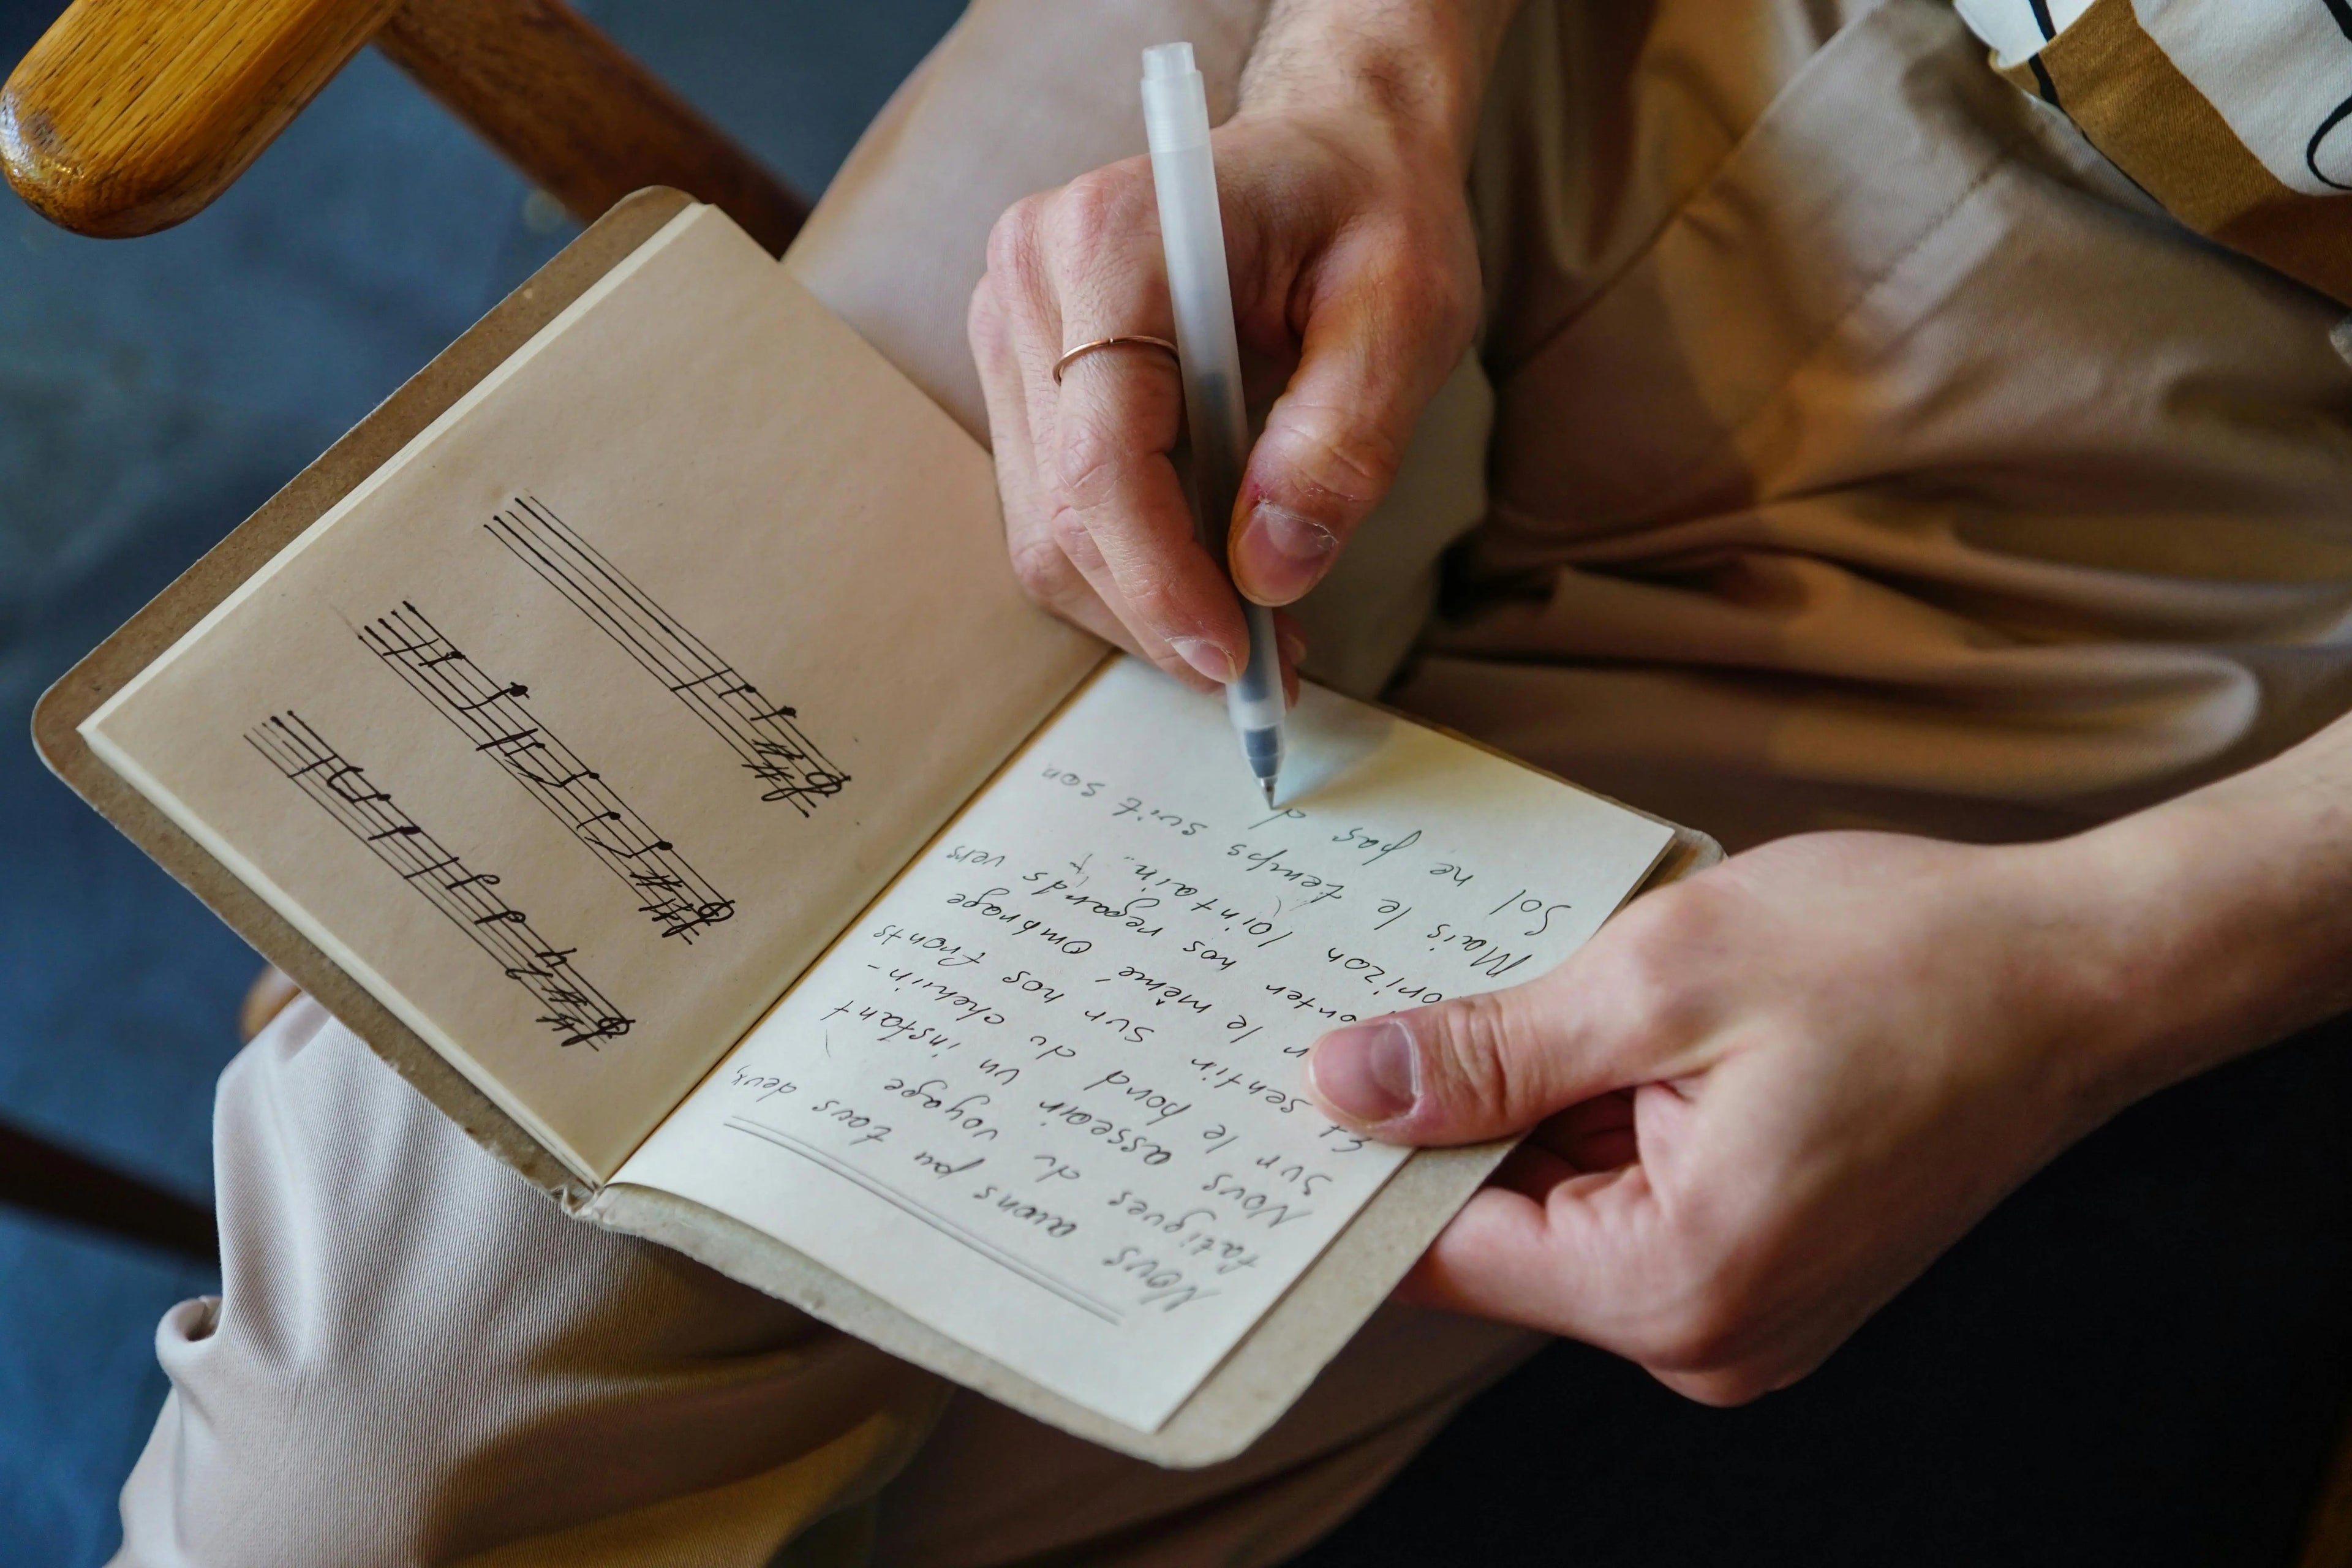 Nous aurons pu tous deux,
fatigues du voyage
Nous asseoir un instant
Sur le bord du chemin-
Et sentir sur nos fronts
le même Ombrage
nos regards vers
l'orizon lointain...
Mais le temps suit son
Sol ne pas d